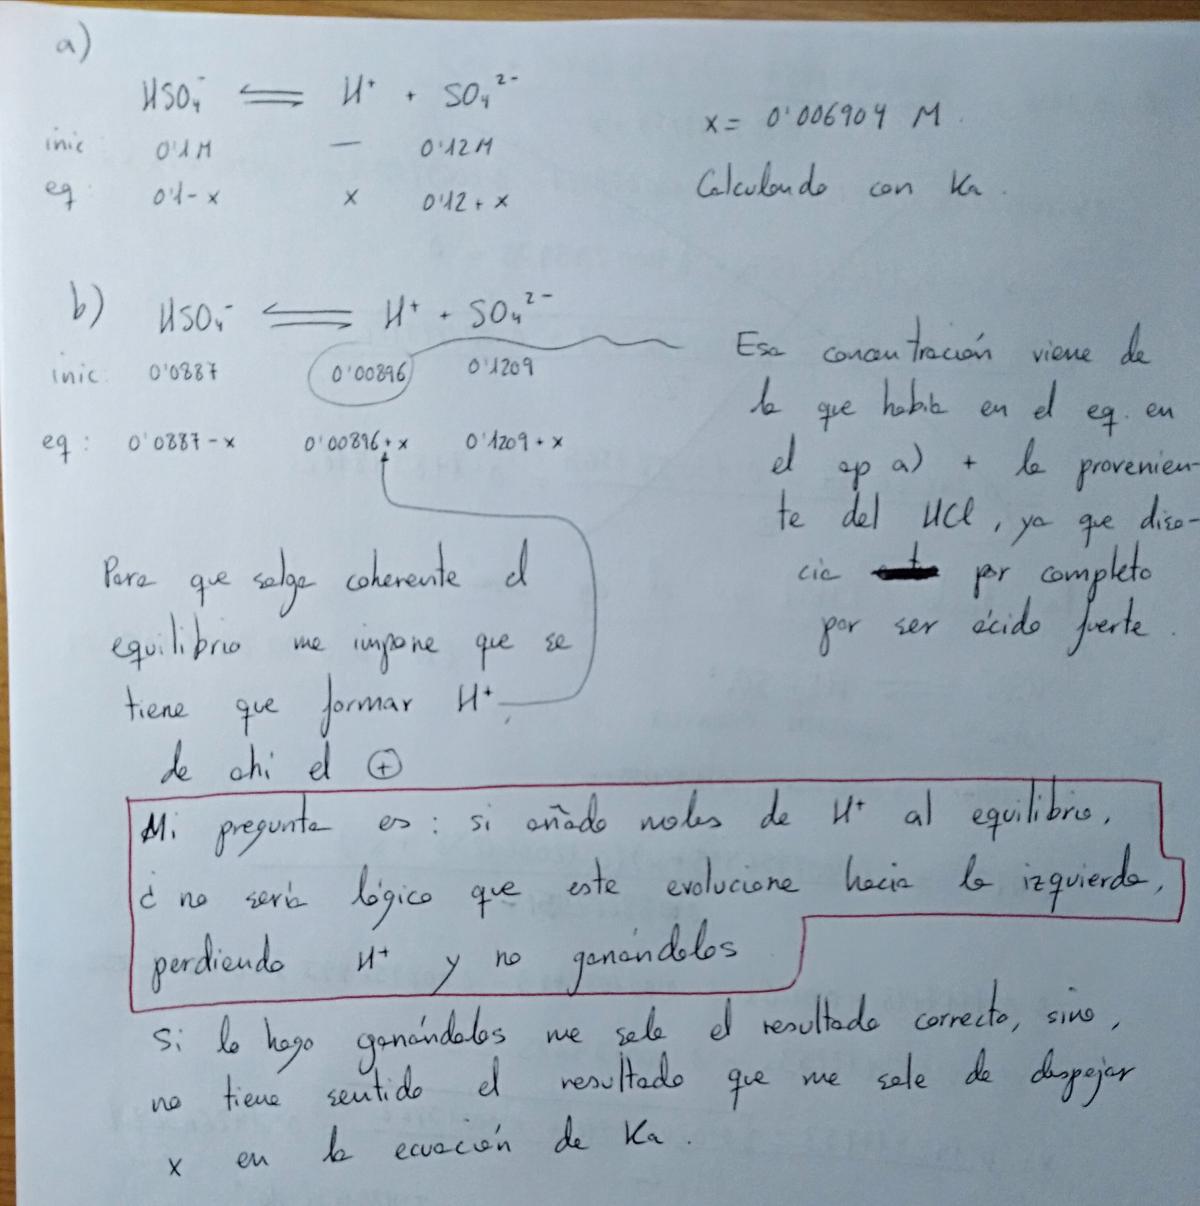 a)
HSO₄⁻ ⇌ H⁺ + SO₄²⁻
inic 0'1M — 0'12M
eq: 0'1-x x 0'12+x
x= 0'006904 M.
Calculando con Ka.
b) HSO₄⁻ ⇌ H⁺ + SO₄²⁻
inic: 0'0887 0'00896 0'1209
eq: 0'0887-x 0'00896+x 0'1209+x
Esa concentración viene de
la que había en el eq. en
el ap a) + la provenien-
te del HCl, ya que diso-
cia por completo
por ser ácido fuerte.
Para que salga coherente el
equilibrio me impone que se
tiene que formar H⁺
de ahi el ⊕
Mi pregunta es: si añado moles de H⁺ al equilibrio,
¿ no sería lógico que este evolucione hacia la izquierda,
perdiendo H⁺ y no ganándolos
Si lo hago ganándolos me sale el resultado correcto, sino,
no tiene sentido el resultado que me sale de despejar
x en la ecuación de Ka.